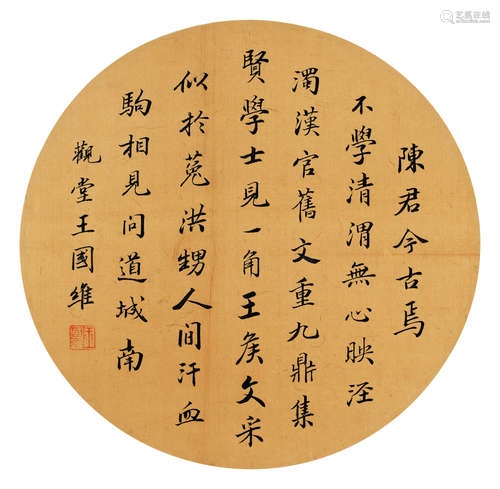 陳君今古焉
不學清渭無心映涇
濁漢官舊文重九鼎集
賢學士見一角王侯文采
似於菟洪甥人間汗血
駒相見問道城南
觀堂王國維
艺狐在线